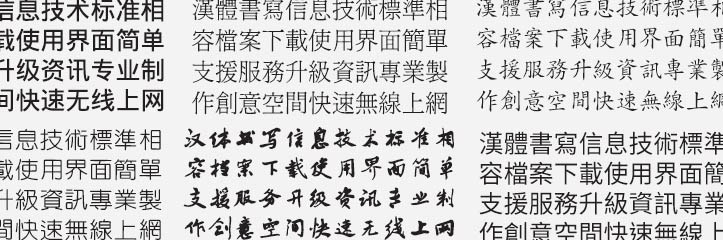 信息技术标准相
载使用界面简单
升级资讯专业制
间快速无线上网
漢體書寫信息技術標準相
容檔案下載使用界面簡單
支援服務升級資訊專業製
作創意空間快速無線上網
漢體書寫信息技術標準相
容檔案下載使用界面簡單
支援服務升級資訊專業製
作創意空間快速無線上網
信息技術標準相
載使用界面簡單
升級資訊專業製
間快速無線上網
汉体书写信息技术标准相
容档案下载使用界面简单
支援服务升级资讯专业制
作创意空间快速无线上网
漢體書寫信息技術標準
容檔案下載使用界面簡
支援服務升級資訊專業
作創意空間快速無線上